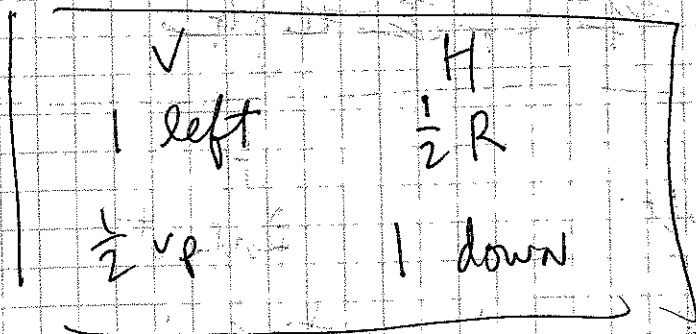 V H
1 left ½ R
½ up 1 down